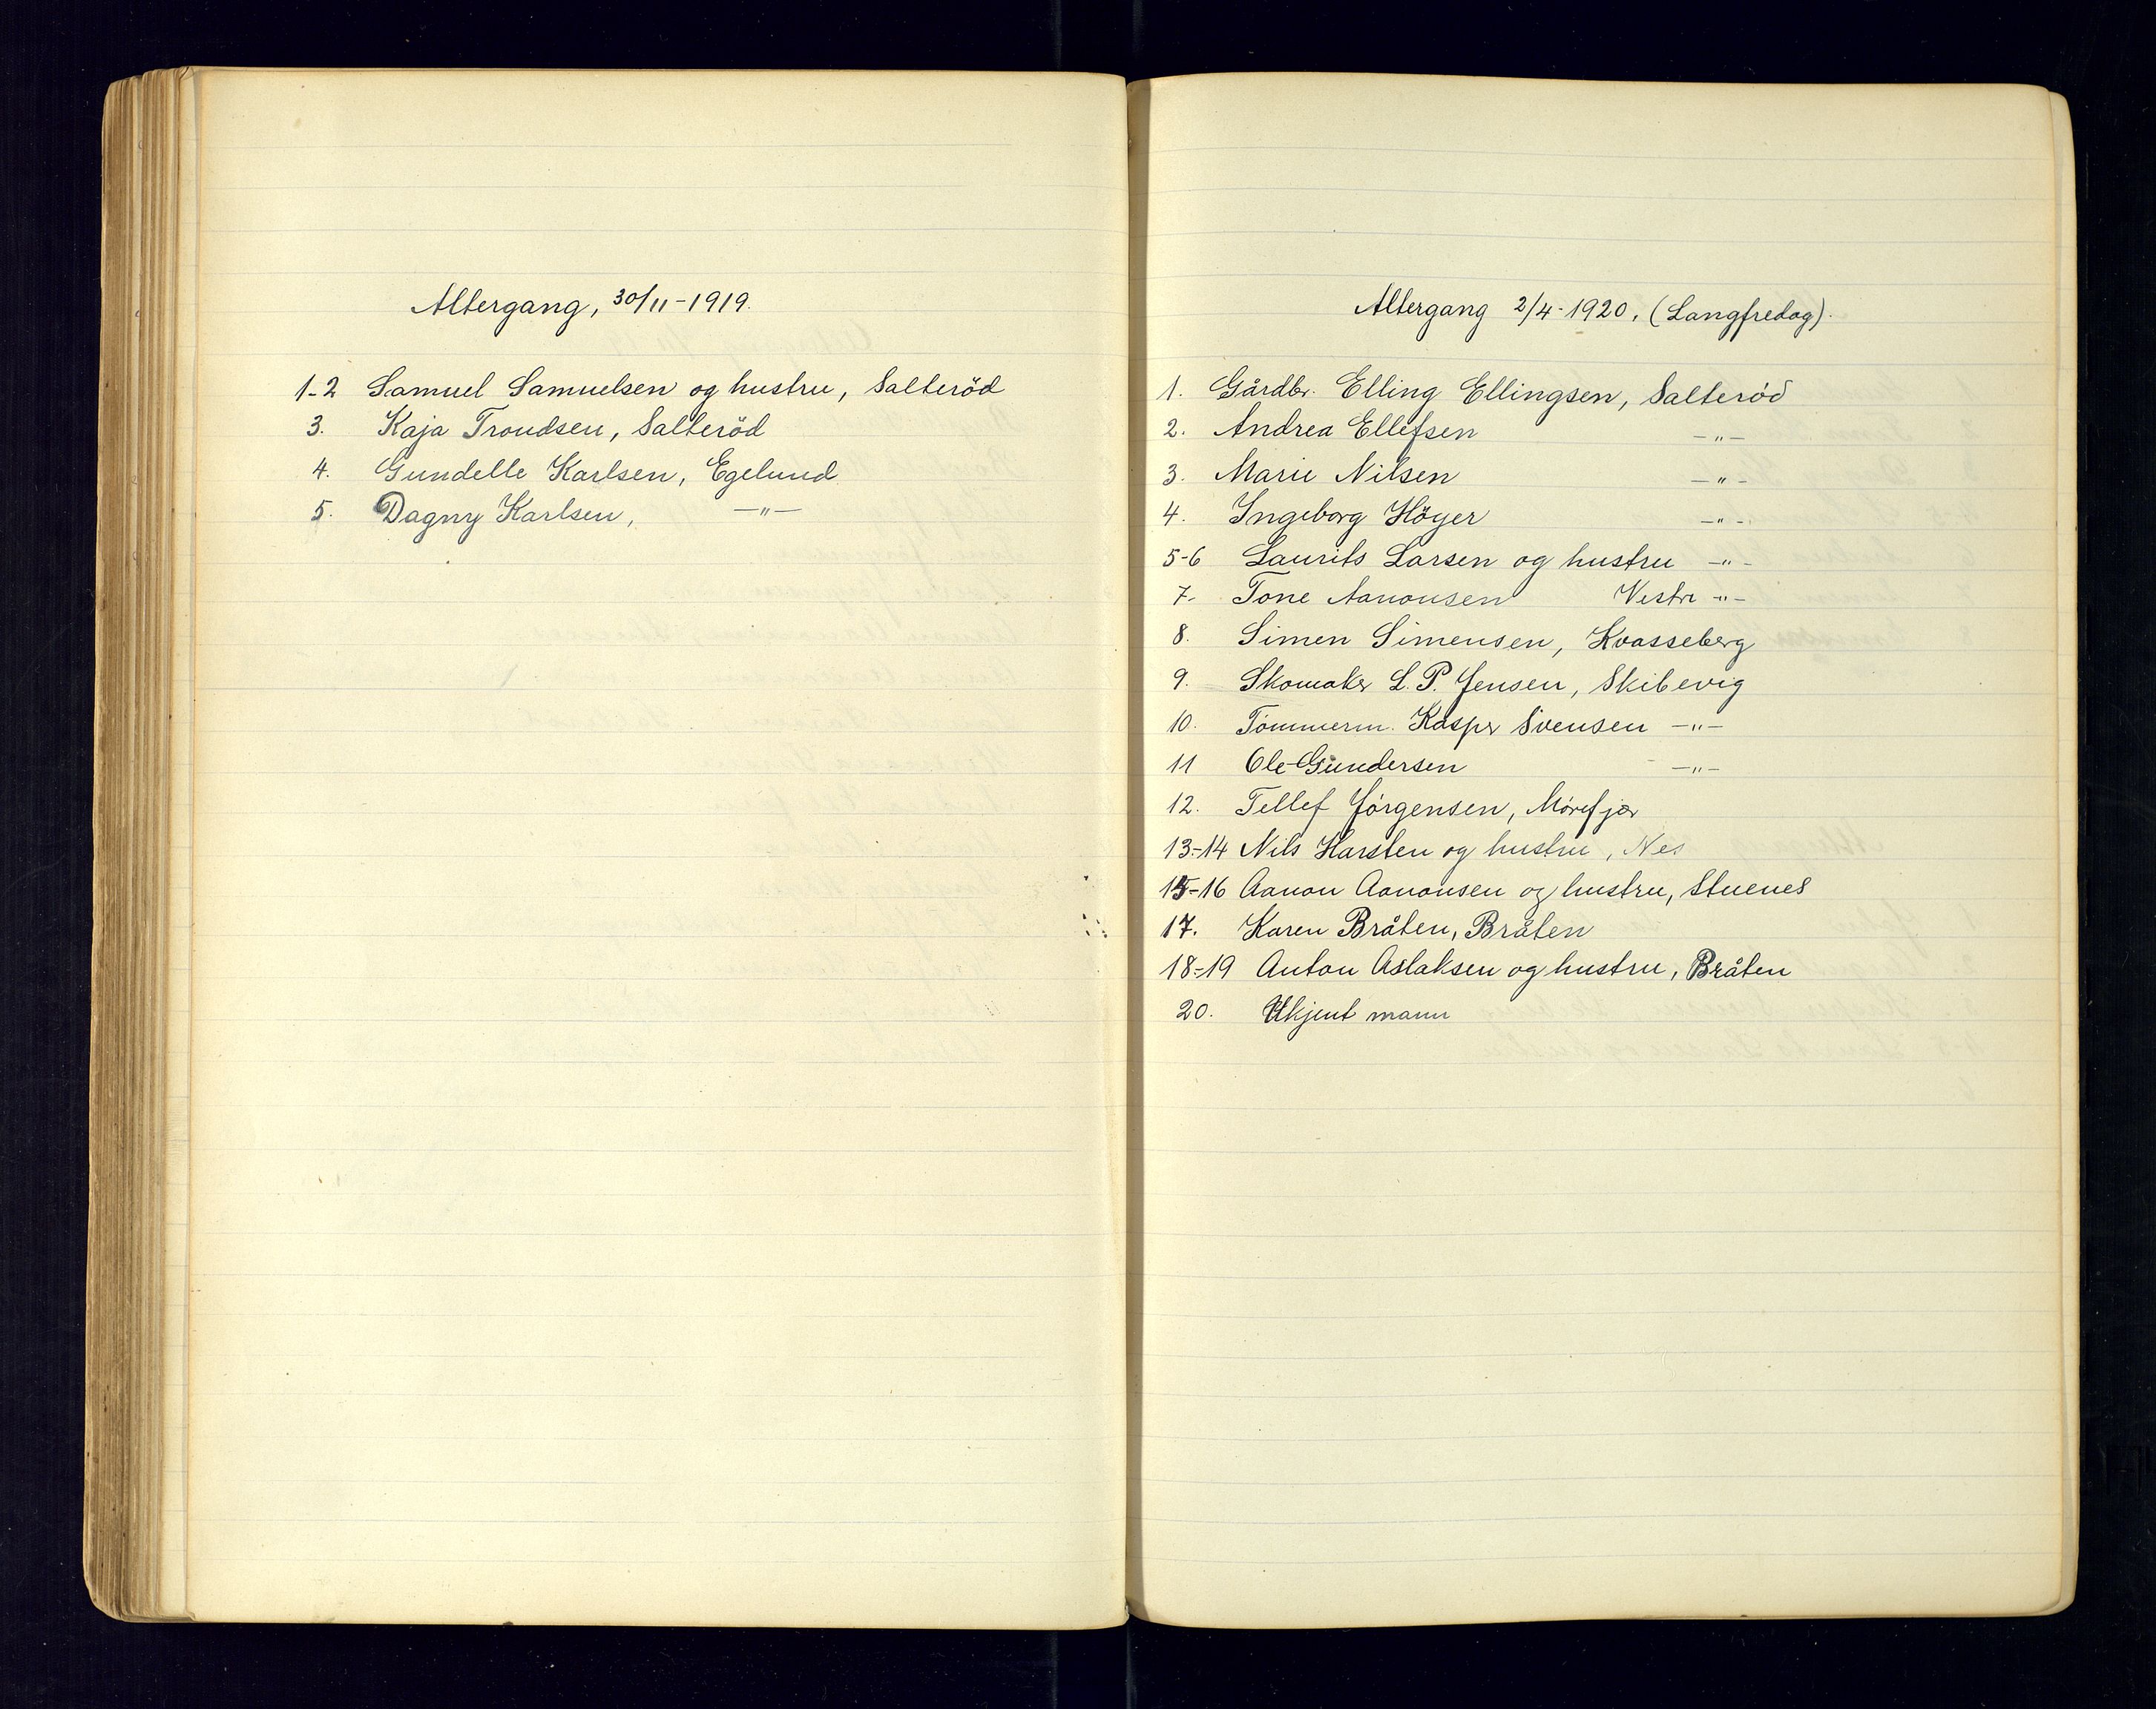 Altergang, 30/11-1919.
1-2 Samuel Samuelsen og hustru, Salteröd
3. Kaja Trondsen, Salteröd
4. Gundelle Karlsen, Egelund
5. Dagny Karlsen, —"—
Altergang 2/4-1920, (Langfredag).
1. Gårdbr. Elling Ellingsen, Salteröd
2. Andrea Ellefsen —"—
3. Marie Nilsen —"—
4. Ingeborg Höyer —"—
5-6 Laurits Larsen og hustru —"—
7. Tone Aanonsen Vestre —"—
8. Simen Simensen, Kvasseberg
9. Skomaker L. P. Jensen, Skibevig
10. Tömmerm. Kasper Svensen —"—
11 Ole Gundersen —"—
12. Tellef Jörgensen, Mörefjær
13-14 Nils Harsten og hustru, Nes
15-16 Aanon Aanonsen og hustru, Stuenes
17. Karen Bråten, Bråten
18-19 Anton Aslaksen og hustru, Bråten
20. Ukjent mann